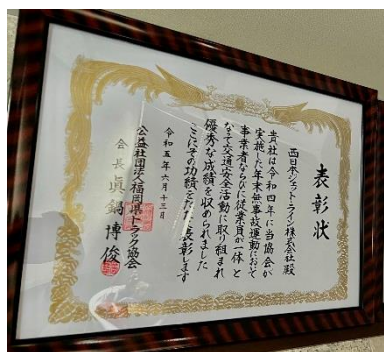 表彰状
西日本ジェットライン株式会社殿
貴社は令和四年に当協会が
実施した年末無事故運動において
事業者ならびに従業員が一体と
なって交通安全活動に取り組まれ
優秀な成績を収められました
ここにその功績をたたえ表彰します
令和五年六月十三日
公益社団法人福岡県トラック協会
会長 眞鍋博俊